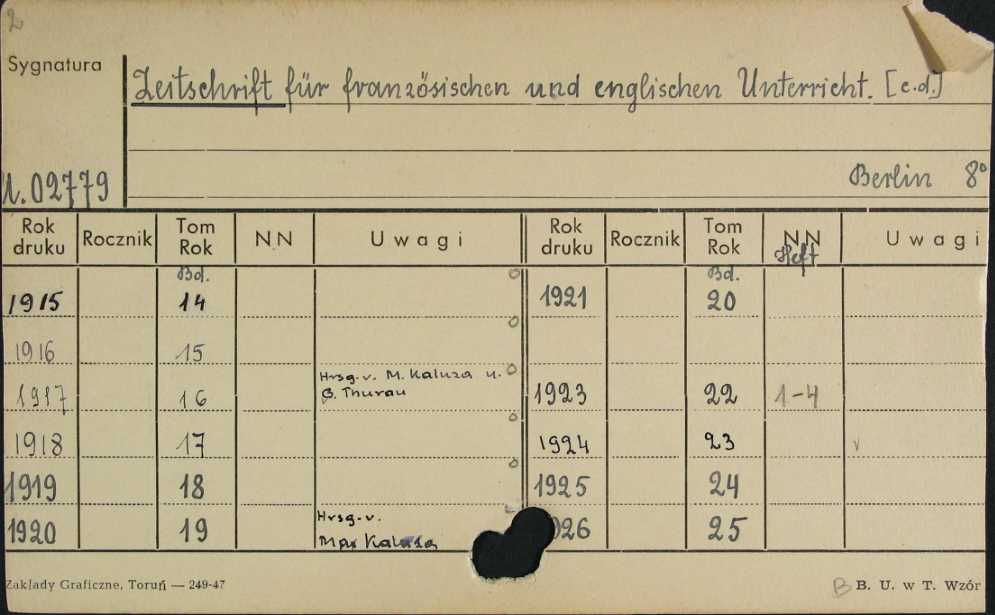 2
Sygnatura
Zeitschrift für französischen und englischen Unterricht. [c.d.]
U.02779
Berlin 8°
Rok druku Rocznik Tom Rok NN Uwagi Rok druku Rocznik Tom Rok NN Heft Uwagi
Bd. Bd.
1915 14 1921 20
1916 15
1917 16 Hrsg. v. M. Kaluza u. G. Thurau 1923 22 1-4
1918 17 1924 23 v
1919 18 1925 24
1920 19 Hrsg. v. Max Kaluza 026 25
Zakłady Graficzne, Toruń — 249-47
B B. U. w T. Wzór